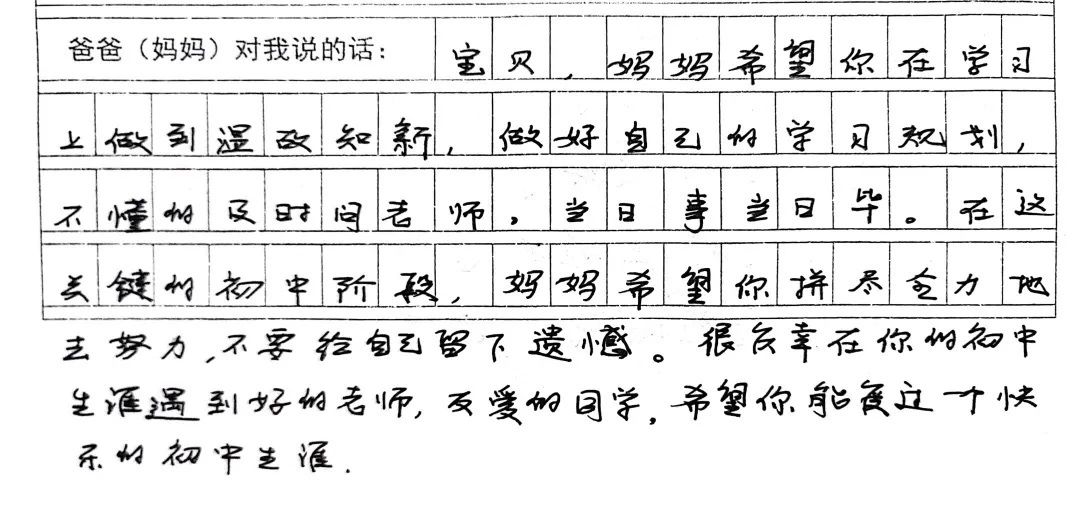 爸爸（妈妈）对我说的话：宝贝，妈妈希望你在学习
上做到温故知新，做好自己的学习规划，
不懂的及时问老师。当日事当日毕。在这
关键的初中阶段，妈妈希望你拼尽全力地
去努力，不要给自己留下遗憾。很庆幸在你的初中
生涯遇到好的老师，友爱的同学，希望你能度过一个快
乐的初中生涯.